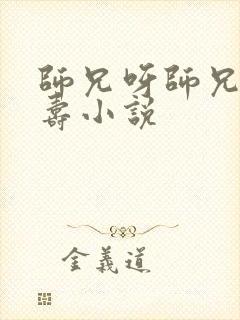 師兄呀師兄
壽小説
金義道